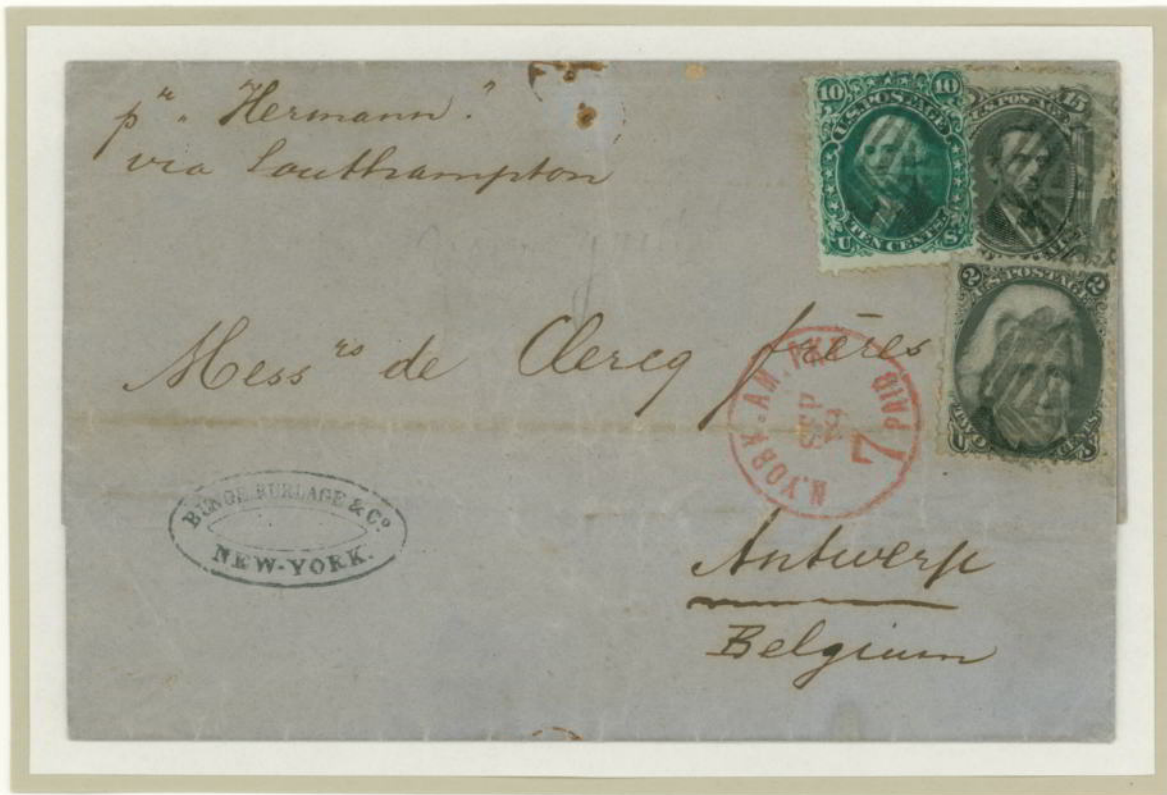 pr. "Hermann."
via Southampton
10 10
U.S. POSTAGE
TEN CENTS
U S
15
U.S. POSTAGE
2 2
U.S. POSTAGE
TWO CENTS
U S
Messrs de Clercq frères
N. YORK. AM. PKT. PAID
SEP
7
BUNGE BURLAGE & Co
NEW-YORK.
Antwerp
Belgium